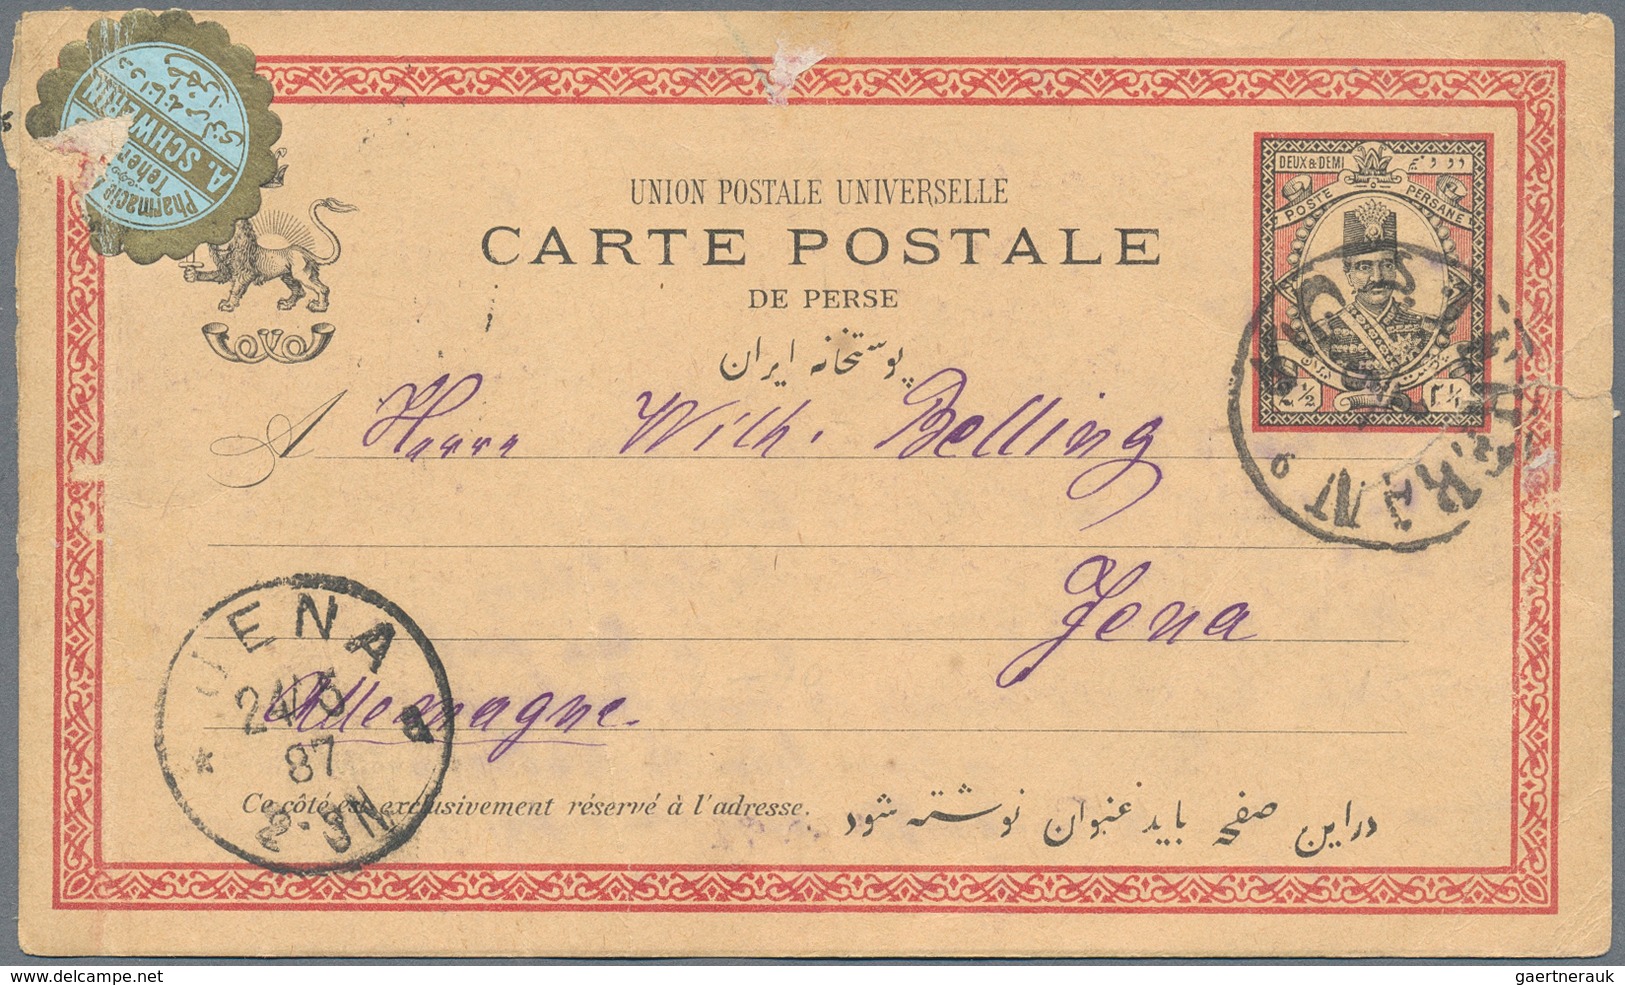 Pharmacie
Teheran
A. SCHWERIN
UNION POSTALE UNIVERSELLE
CARTE POSTALE
DE PERSE
پوستخانه ایران
DEUX & DEMI
POSTE PERSANE
2½
۲½
A Herrn Wilh. Belling
Jena
Allemagne.
JENA
24/5
87
2-3N
Ce côté est exclusivement réservé à l'adresse.
در این صفحه باید عنوان نوشته شود
delcampe.net
gaertnerauk